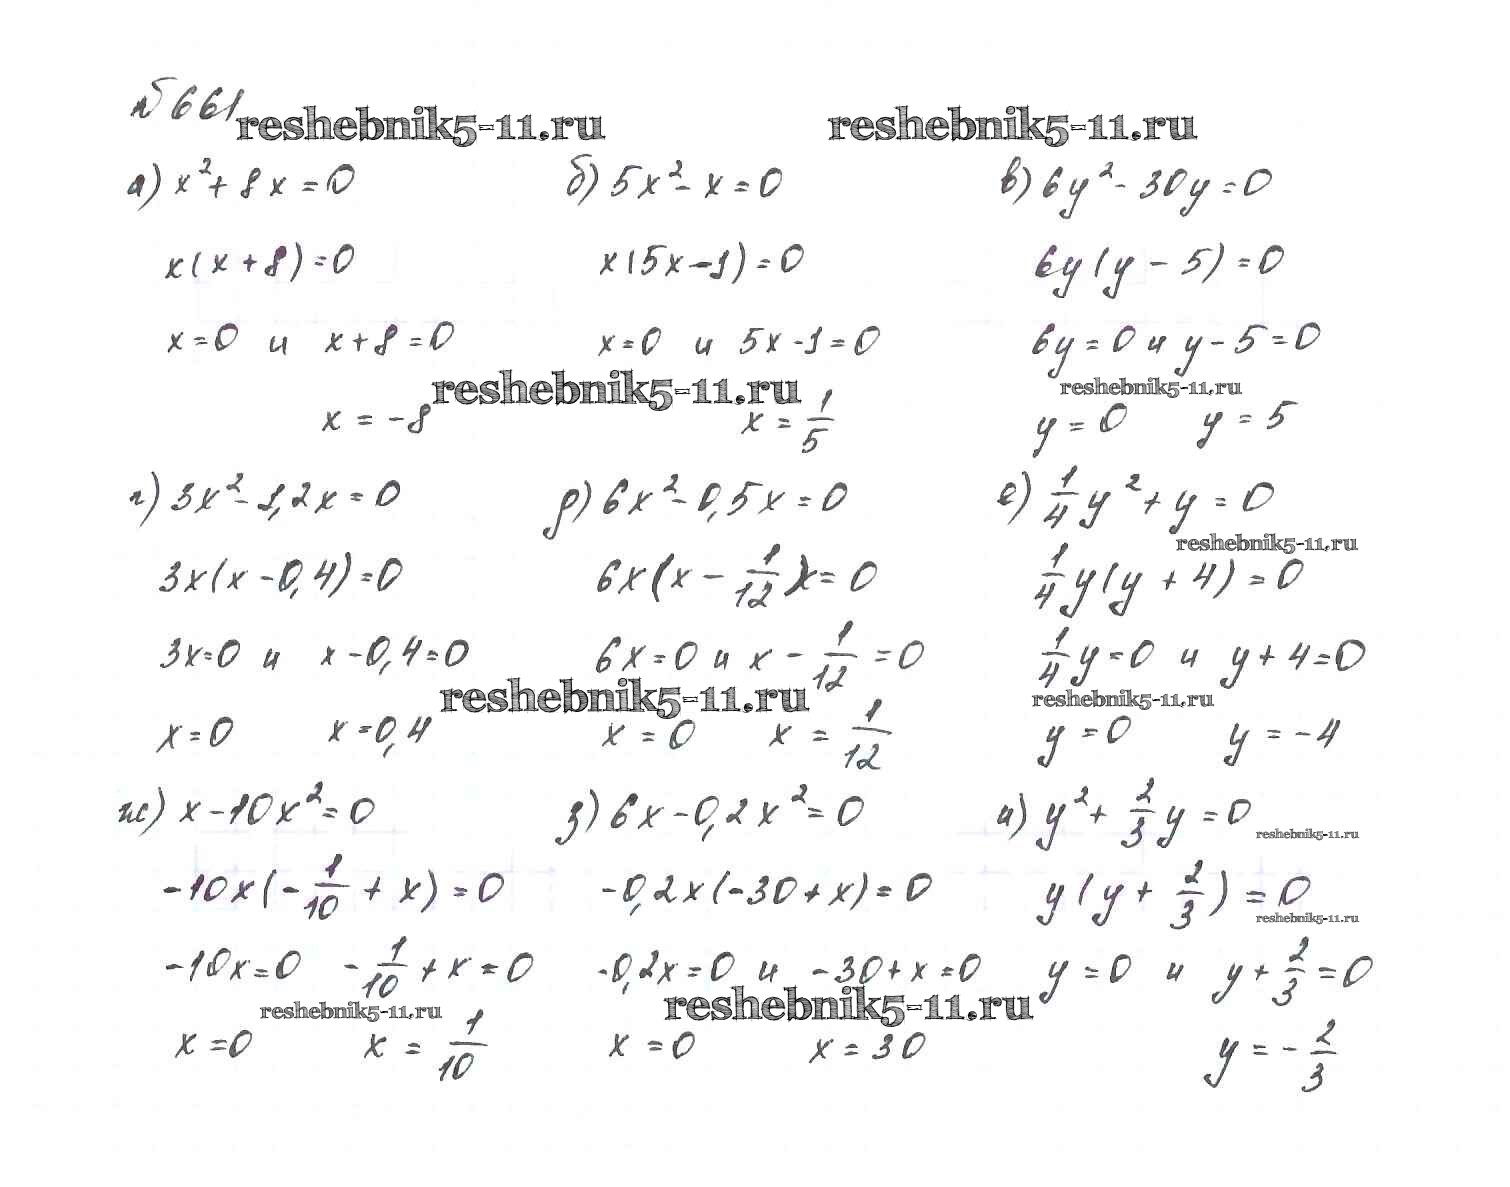 №661
reshebnik5-11.ru reshebnik5-11.ru
а) x²+8x=0
x(x+8)=0
x=0 и x+8=0
x=-8
б) 5x²-x=0
x(5x-1)=0
x=0 и 5x-1=0
reshebnik5-11.ru
x=1/5
в) 6y²-30y=0
6y(y-5)=0
6y=0 и y-5=0
reshebnik5-11.ru
y=0 y=5
г) 3x²-1,2x=0
3x(x-0,4)=0
3x=0 и x-0,4=0
x=0 x=0,4
д) 6x²-0,5x=0
6x(x-1/12)=0
6x=0 и x-1/12=0
reshebnik5-11.ru
x=0 x=1/12
е) 1/4y²+y=0
reshebnik5-11.ru
1/4y(y+4)=0
1/4y=0 и y+4=0
reshebnik5-11.ru
y=0 y=-4
ж) x-10x²=0
-10x(-1/10+x)=0
-10x=0 -1/10+x=0
reshebnik5-11.ru
x=0 x=1/10
з) 6x-0,2x²=0
-0,2x(-30+x)=0
-0,2x=0 и -30+x=0
reshebnik5-11.ru
x=0 x=30
и) y²+2/3y=0
reshebnik5-11.ru
y(y+2/3)=0
reshebnik5-11.ru
y=0 и y+2/3=0
y=-2/3